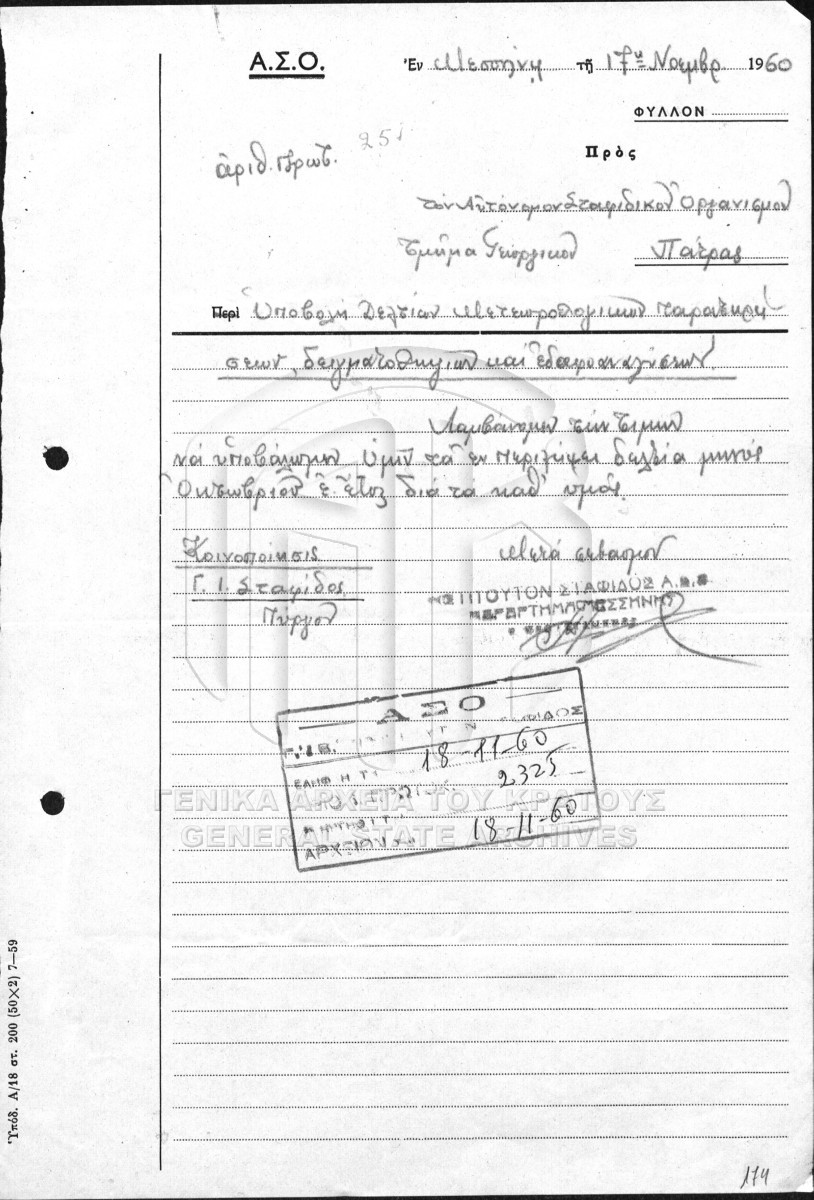 Α.Σ.Ο.
Ἐν Μεσσήνῃ τῇ 17ῃ Νοεμβρ 1960
ΦΥΛΛΟΝ
ἀριθ. πρωτ. 251
Πρὸς
τὸν Αὐτόνομον Σταφιδικὸν Ὀργανισμὸν
Τμῆμα Γεωργικὸν Πάτρας
Περὶ Ὑποβολὴ Δελτίων Μετεωρολογικῶν παρατηρή
σεων, δειγματοληψιῶν καὶ ἐδαφοαναλύσεων.
Λαμβάνομεν τὴν τιμὴν
νὰ ὑποβάλωμεν Ὑμῖν τὰ ἐν περιλήψει δελτία μηνός
Ὀκτωβρίου ἐ. ἔτος διὰ τὰ καθ' ὑμᾶς.
Κοινοποίησις
Μετὰ σεβασμοῦ
Γ. Ι. Σταφίδος
Πύργον
ΙΝΣΤΙΤΟΥΤΟΝ ΣΤΑΦΙΔΟΣ Α.Σ.Ο
ΠΑΡΑΡΤΗΜΑ ΜΕΣΣΗΝΗΣ
ΑΣΟ
18-11-60
2325
18-11-60
ΑΡΧΕΙΟΝ
ΓΕΝΙΚΑ ΑΡΧΕΙΑ ΤΟΥ ΚΡΑΤΟΥΣ
GENERAL STATE ARCHIVES
Ὑπόδ. Α/18 στ. 200 (50×2) 7—59
174